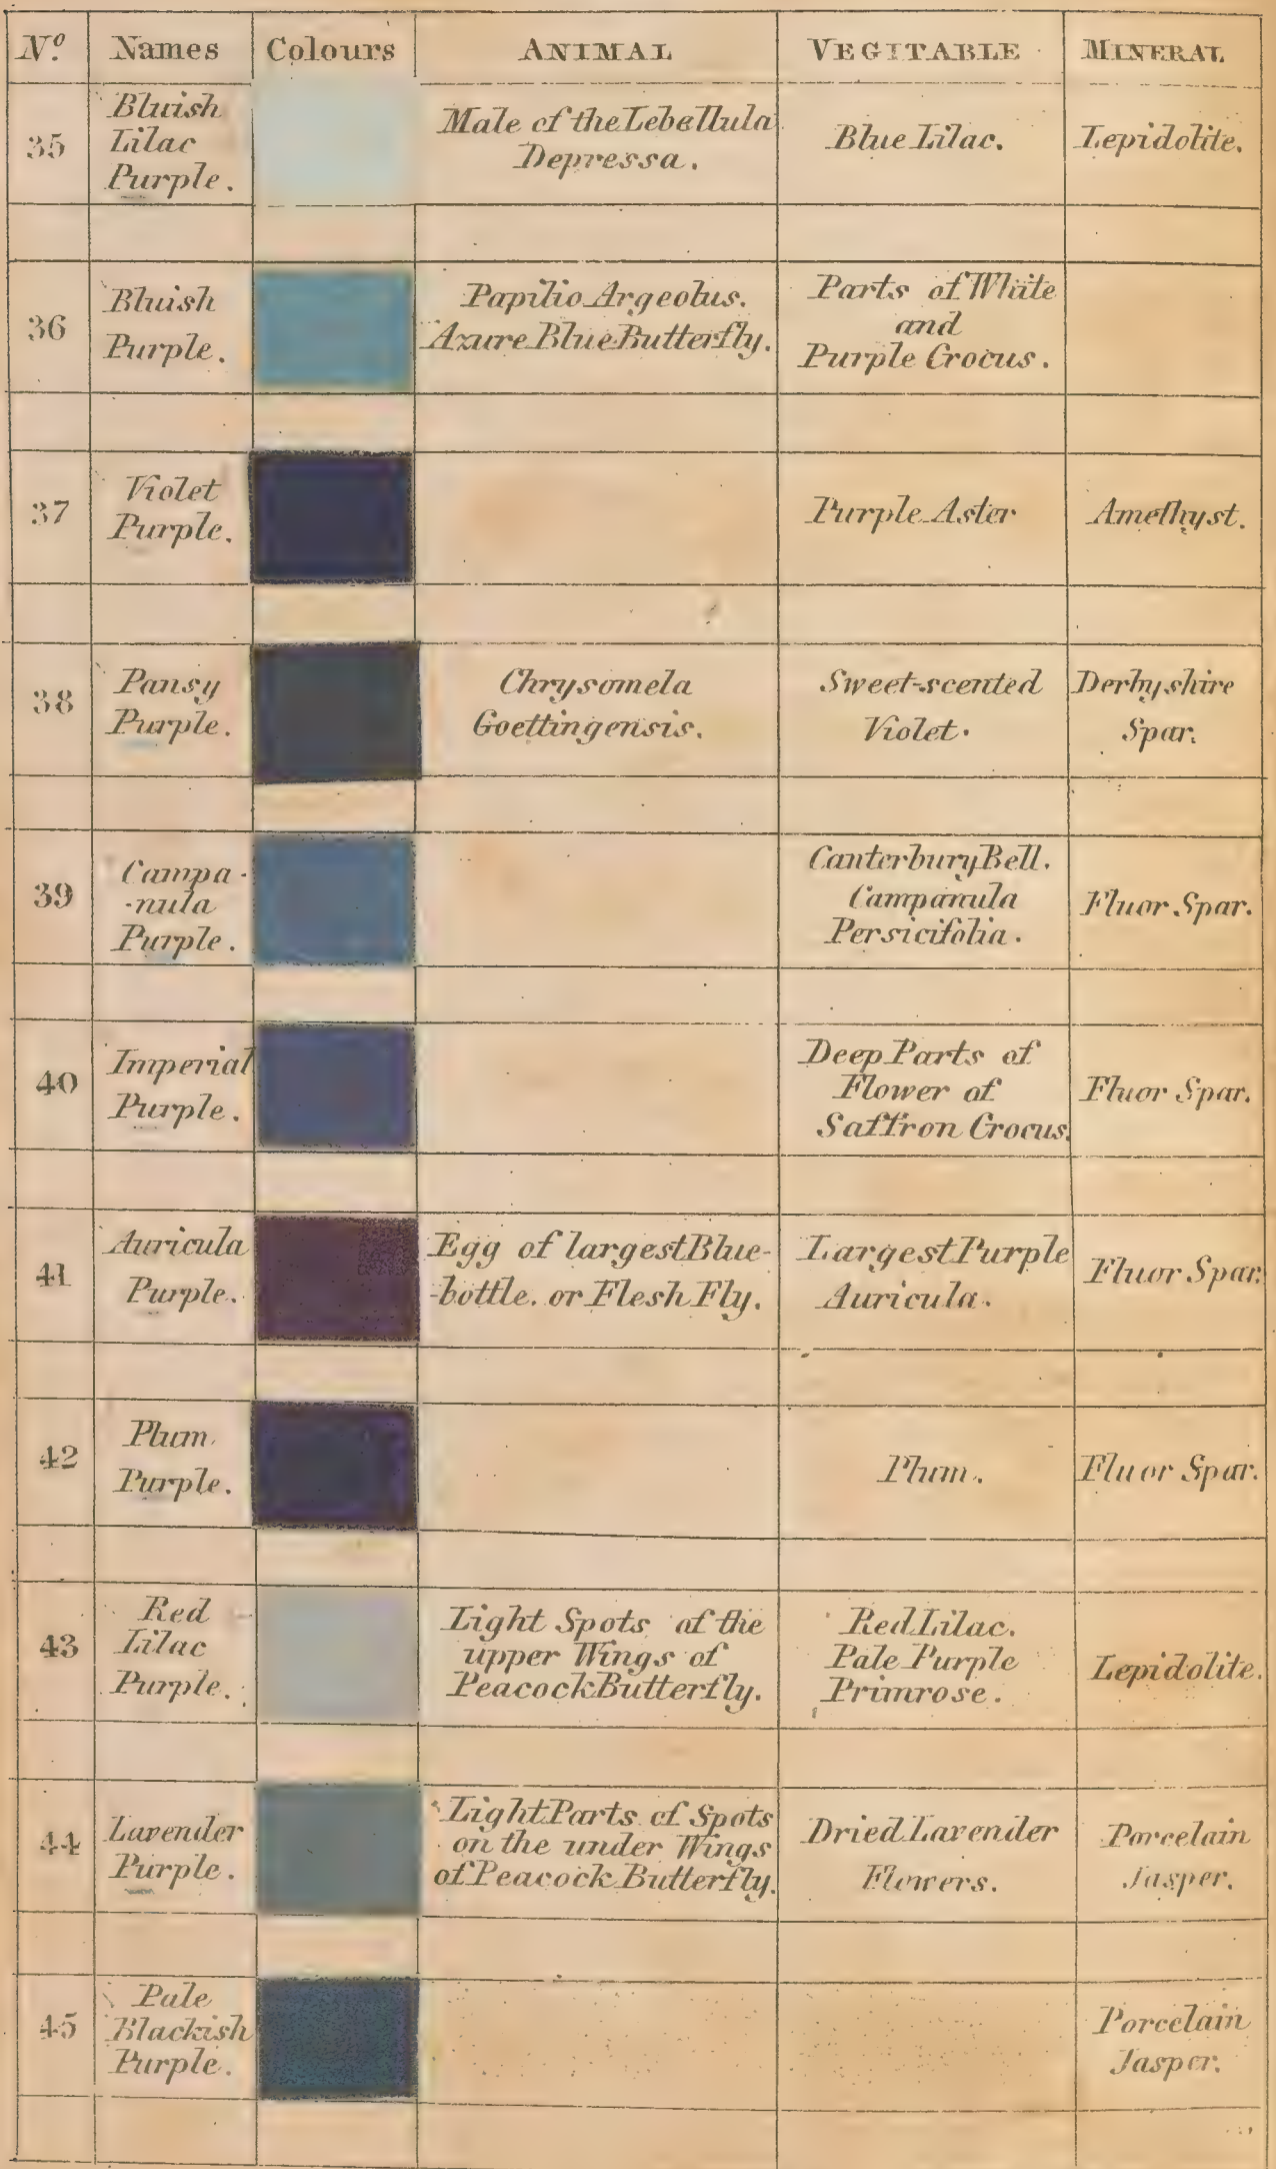 Nº. Names Colours ANIMAL VEGITABLE MINERAL
35
Bluish
Lilac
Purple.
Male of the Lebellula
Depressa.
Blue Lilac.
Lepidolite.
36
Bluish
Purple.
Papilio Argeolus.
Azure Blue Butterfly.
Parts of White
and
Purple Crocus.
37
Violet
Purple.
Purple Aster
Amethyst.
38
Pansy
Purple.
Chrysomela
Goettingensis.
Sweet-scented
Violet.
Derbyshire
Spar.
39
Campa-
-nula
Purple.
Canterbury Bell.
Campanula
Persicifolia.
Fluor Spar.
40
Imperial
Purple.
Deep Parts of
Flower of
Saffron Crocus.
Fluor Spar.
41
Auricula
Purple.
Egg of largest Blue-
-bottle. or Flesh Fly.
Largest Purple
Auricula.
Fluor Spar.
42
Plum
Purple.
Plum.
Fluor Spar.
43
Red
Lilac
Purple.
Light Spots of the
upper Wings of
Peacock Butterfly.
Red Lilac.
Pale Purple
Primrose.
Lepidolite.
44
Lavender
Purple.
Light Parts of Spots
on the under Wings
of Peacock Butterfly.
Dried Lavender
Flowers.
Porcelain
Jasper.
45
Pale
Blackish
Purple.
Porcelain
Jasper.